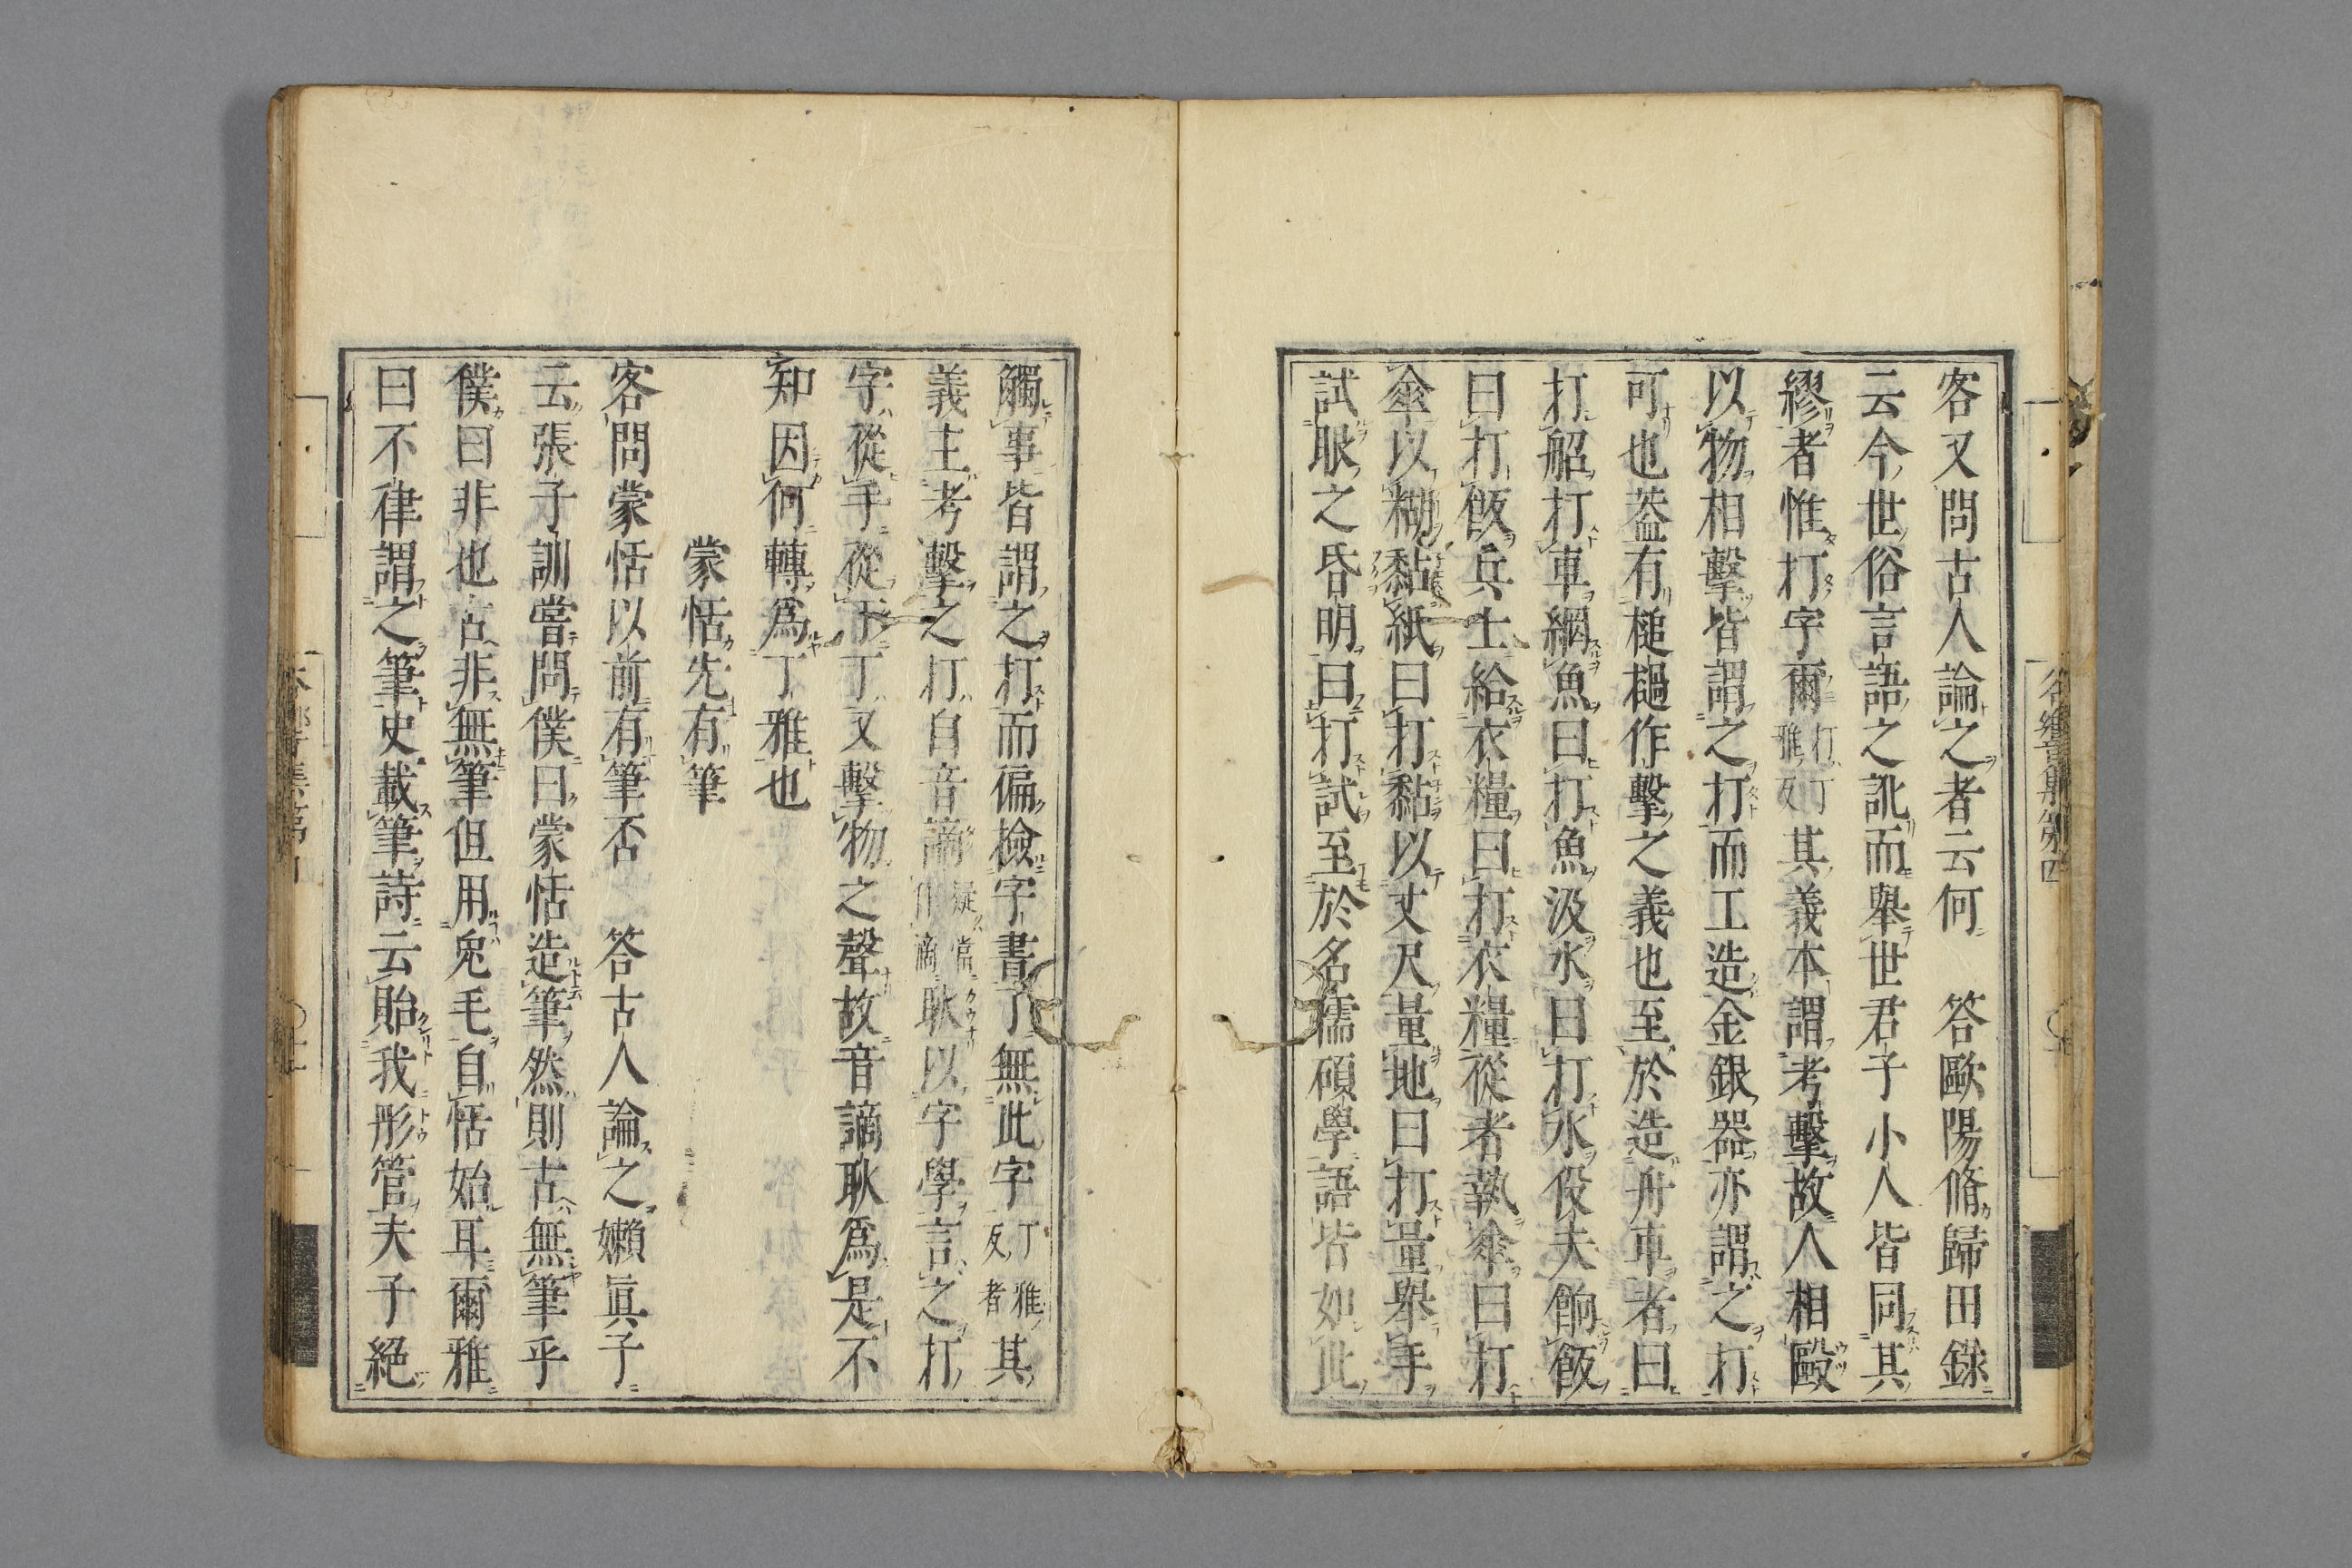 客又問古人論之者云何　答歐陽脩歸田錄
云今世俗言語之訛而舉世君子小人皆同其
繆者惟打字爾打丁雅反其義本謂考擊故人相毆
以物相擊皆謂之打而工造金銀器亦謂之打
可也葢有槌檛作擊之義也至於造舟車者曰
打船打車網魚曰打魚汲水曰打水役夫餉飯
曰打飯兵士給衣糧曰打衣糧從者執傘曰打
傘以糊黏紙曰打黏以丈尺量地曰打量舉手
試眼之昏明曰打試至於名儒碩學語皆如此
觸事皆謂之打而徧檢字書了無此字丁雅反者其
義主考擊之打自音謫疑當作滴耿以字學言之打
字從手從丁丁又擊物之聲故音謫耿爲是不
知因何轉爲丁雅也
蒙恬先有筆
客問蒙恬以前有筆否　答古人論之嬾眞子
云張子訓嘗問僕曰蒙恬造筆然則古無筆乎
僕曰非也古非無筆但用兎毛自恬始耳爾雅
曰不律謂之筆史載筆詩云貽我彤管夫子絕